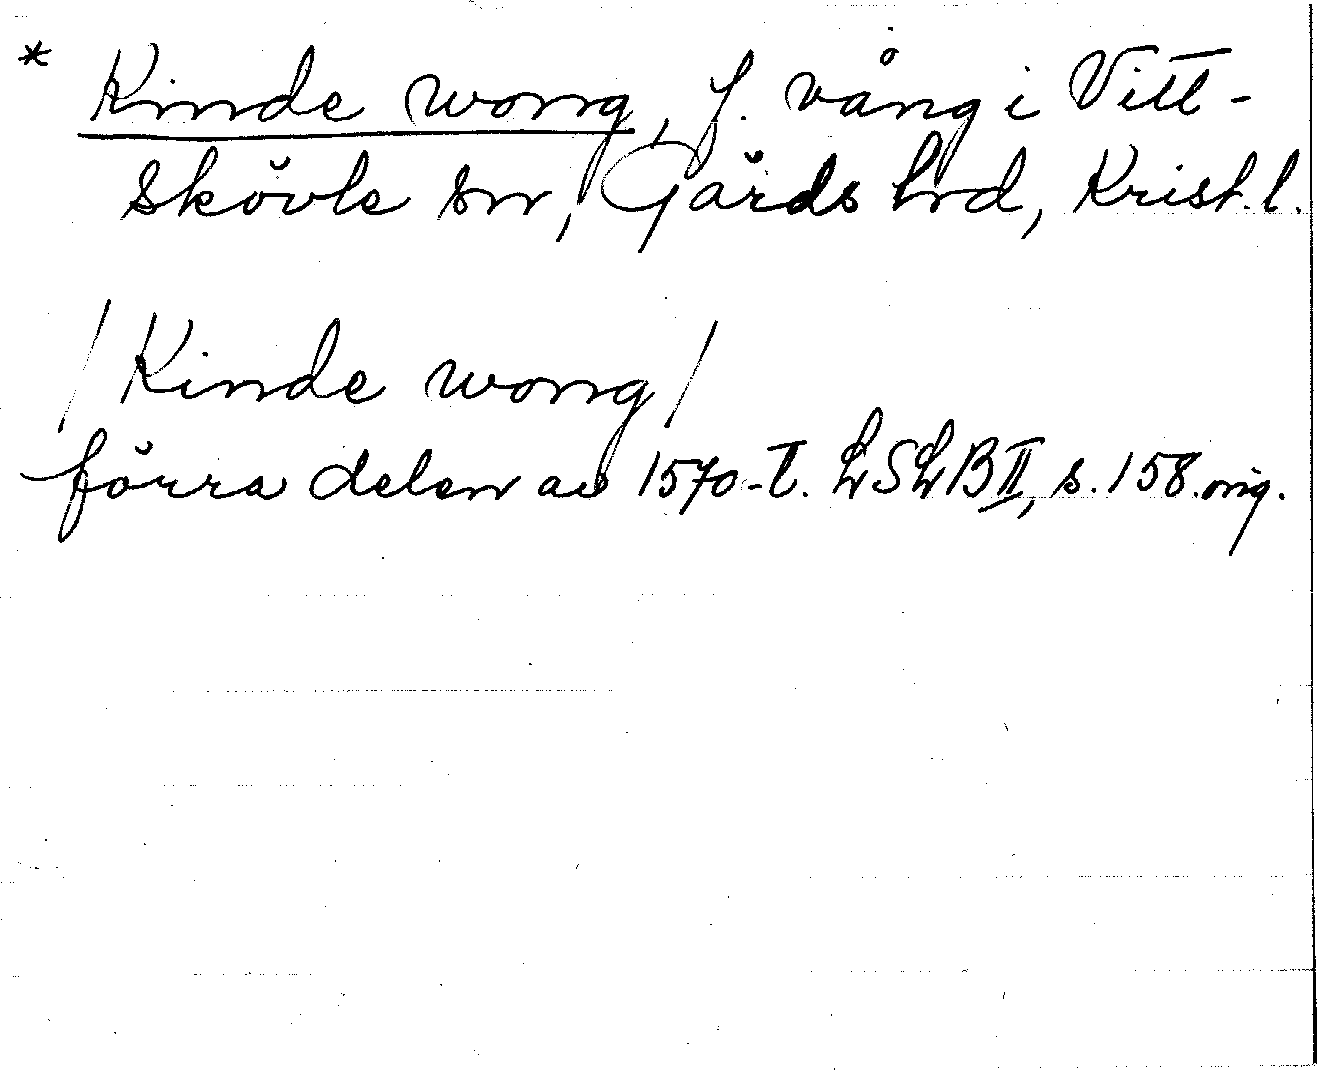 * Kinde wong, f. vång i Vitt-
skövle sn, Gärds hd, Krist. l.
/Kinde wong/
förra delen av 1570-t. LSLB II, s. 158. orig.